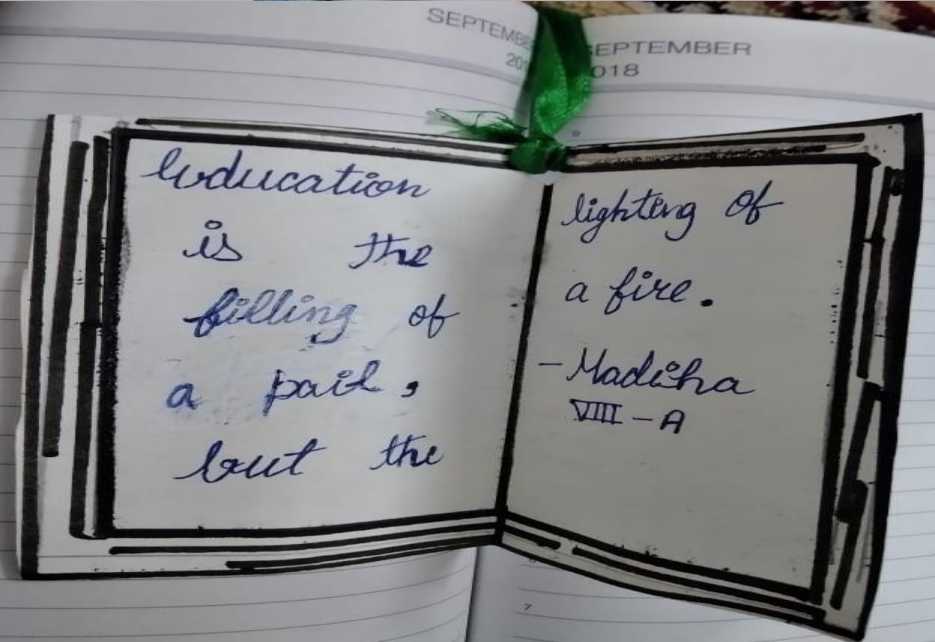 SEPTEMBE
201
SEPTEMBER
2018
9
Education
is the
filling of
a pail,
but the
lighting of
a fire.
- Madiha
VIII - A
7